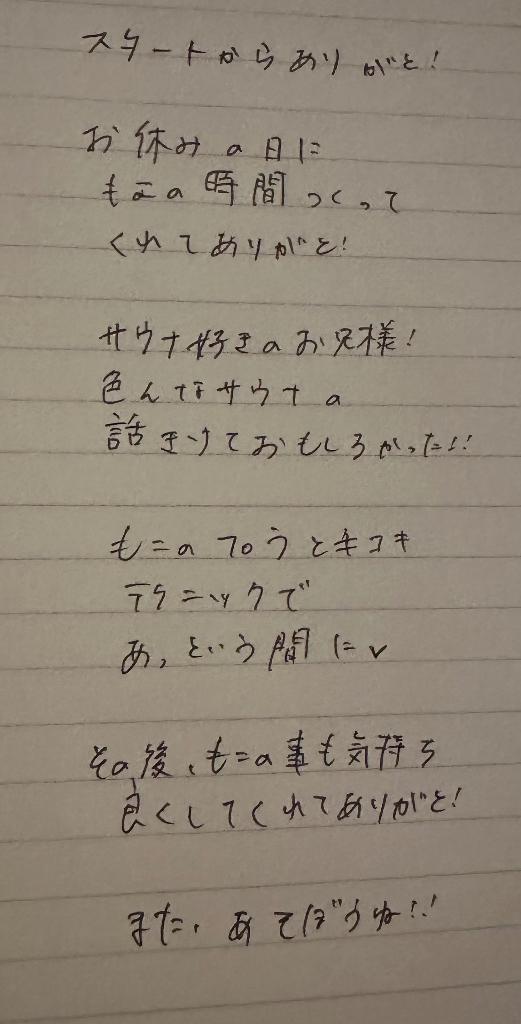 スタートからありがと!
お休みの日に
もこの時間つくって
くれてありがと!
サウナ好きのお兄様!
色んなサウナの
話きけておもしろかった!!
もこのフロうと手コキ
テクニックで
あっという間に
その後、もこの事も気持ち
良くしてくれてありがと!
また、あそぼうね!!